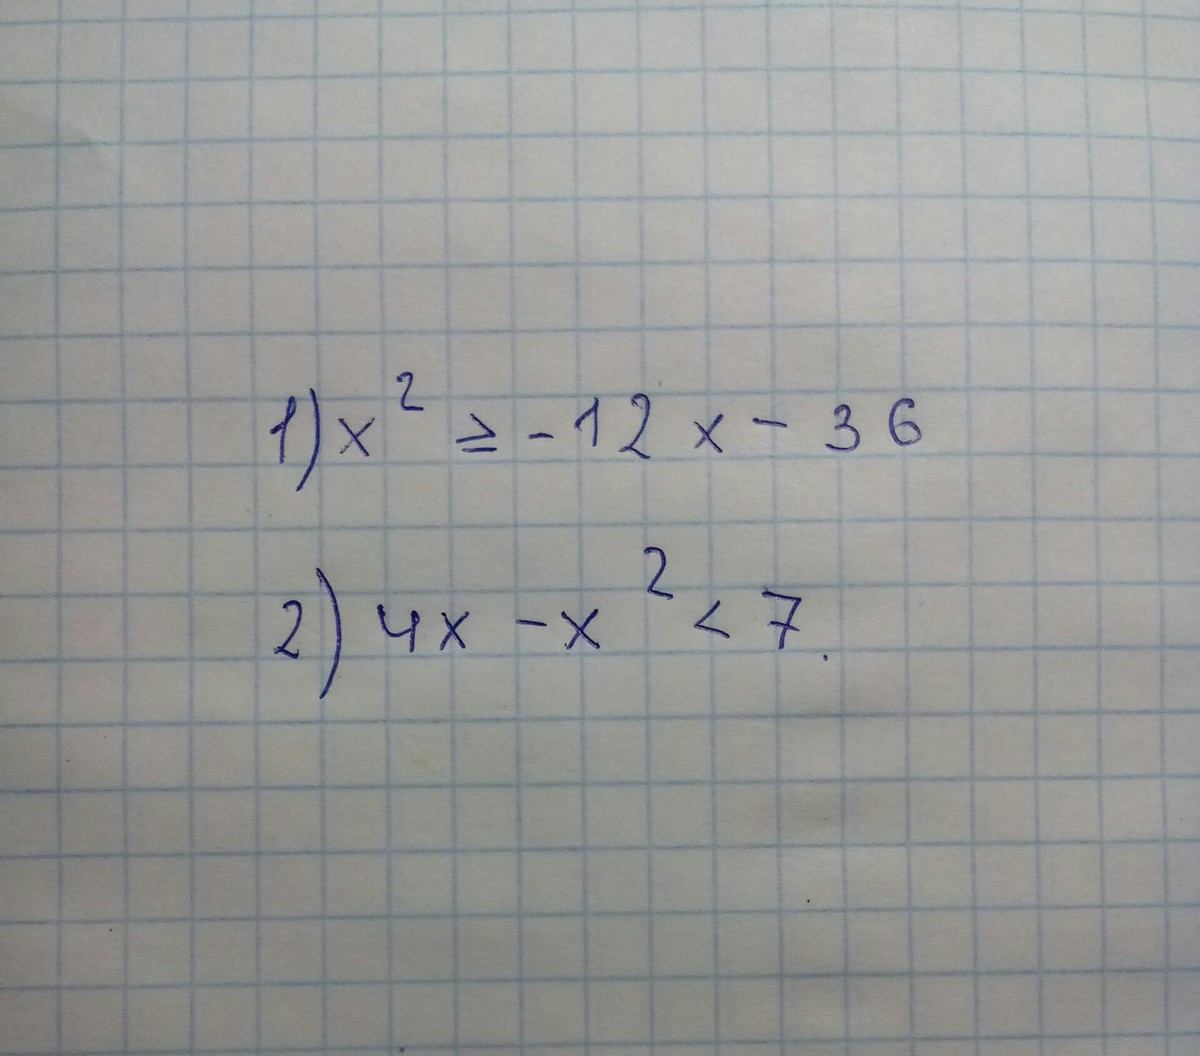 1) x² ≥ -12x - 36
2) 4x - x² < 7.